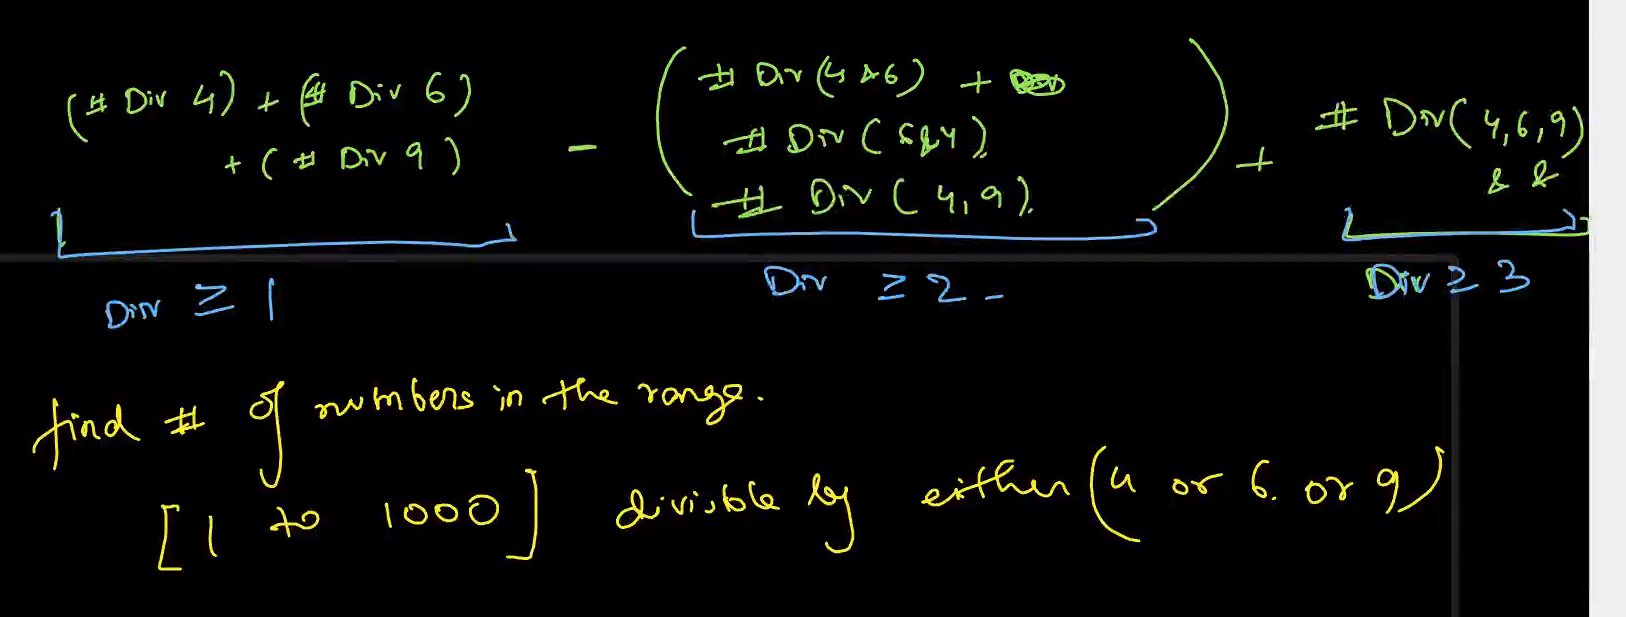 (# Div 4) + (# Div 6)
+ (# Div 9)
-
(# Div (4 & 6) +
# Div (6&4)
# Div (4,9))
+
# Div (4,6,9)
& &
Div ≥ 1
Div ≥ 2 -
Div ≥ 3
find # of numbers in the range.
[1 to 1000] divisble by either (4 or 6. or 9)